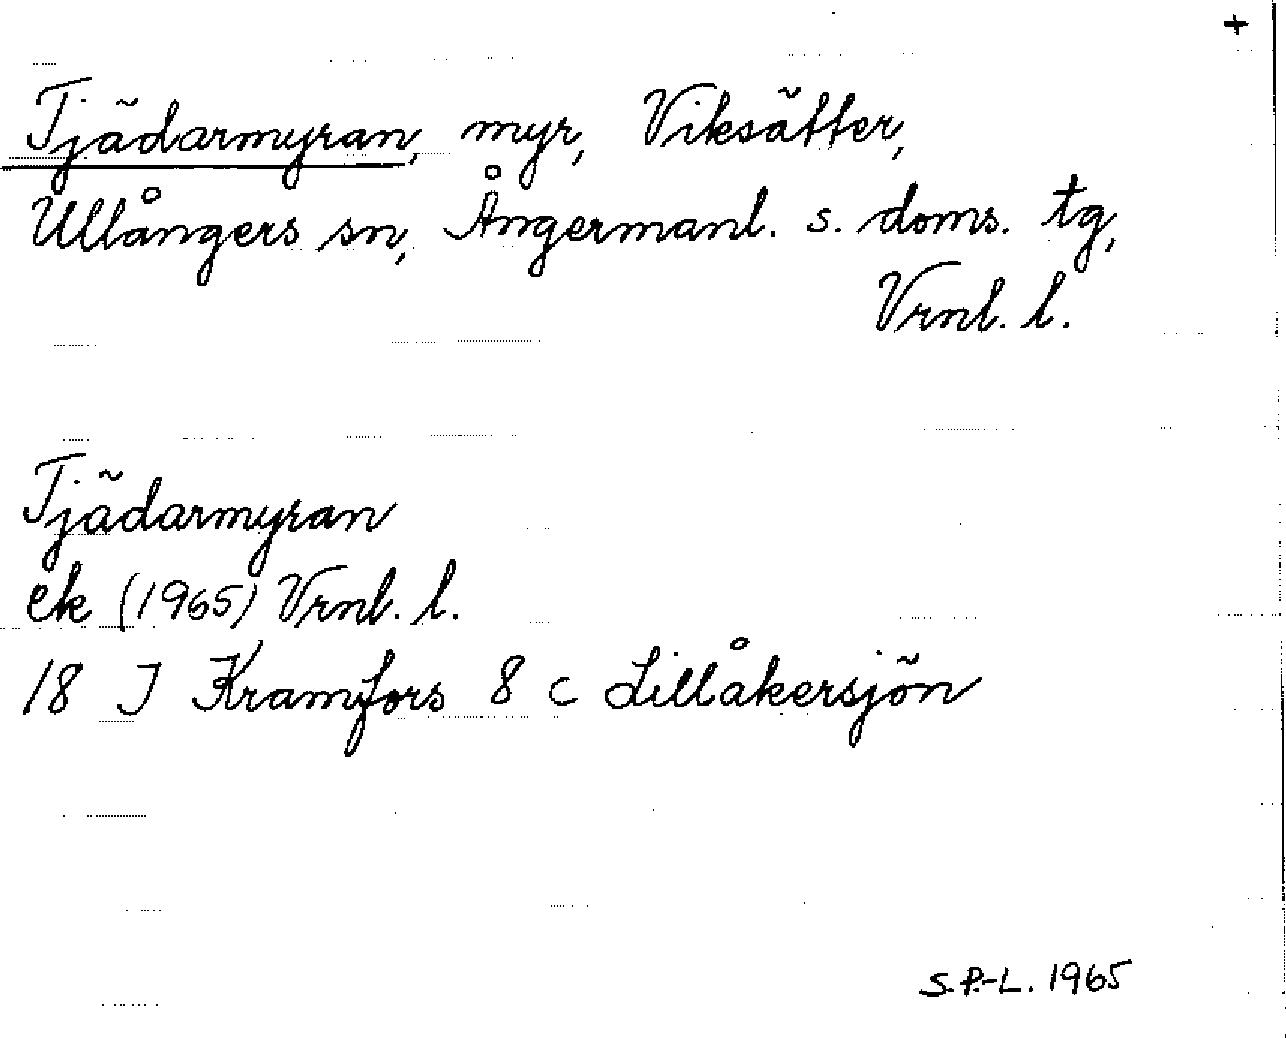 +
Tjädarmyran, myr, Viksätter,
Ullångers sn, Ångermanl. s. doms. tg,
Vrnl. l.
Tjädarmyran
ek (1965) Vrnl. l.
18 J Kramfors 8 c Lillåkersjön
S.P.-L. 1965